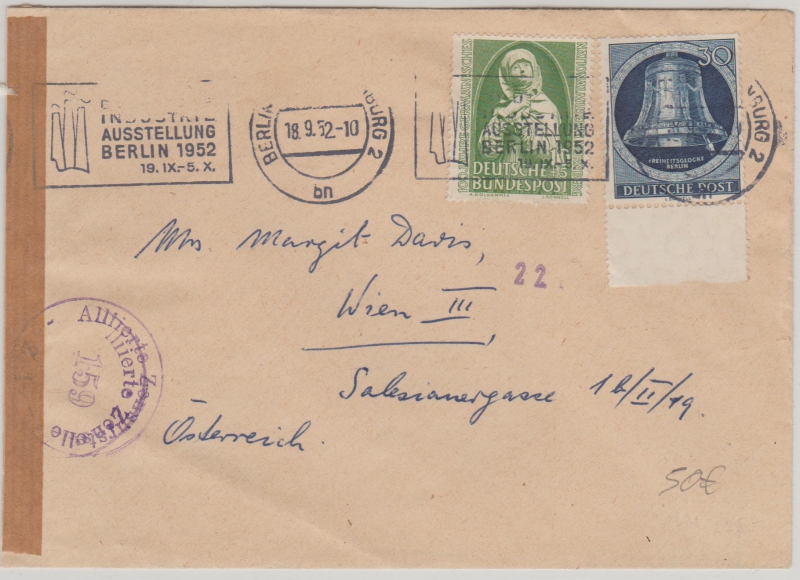 INDUSTRIE
AUSSTELLUNG
BERLIN 1952
19. IX.-5. X.
BERLIN BURG 2
18.9.52-10
bn
AUSSTELLUNG
BERLIN 1952
19. IX.-5. X.
DEUTSCHE 5
BUNDESPOST
30
FREIHEITSGLOCKE
BERLIN
DEUTSCHE POST
BURG 2
Mrs Margit Davis,
22.
Wien III
Salesianergasse 1b/II/19.
Österreich.
Alliierte Zensurstelle
Alliierte Zensurstelle
159
50€